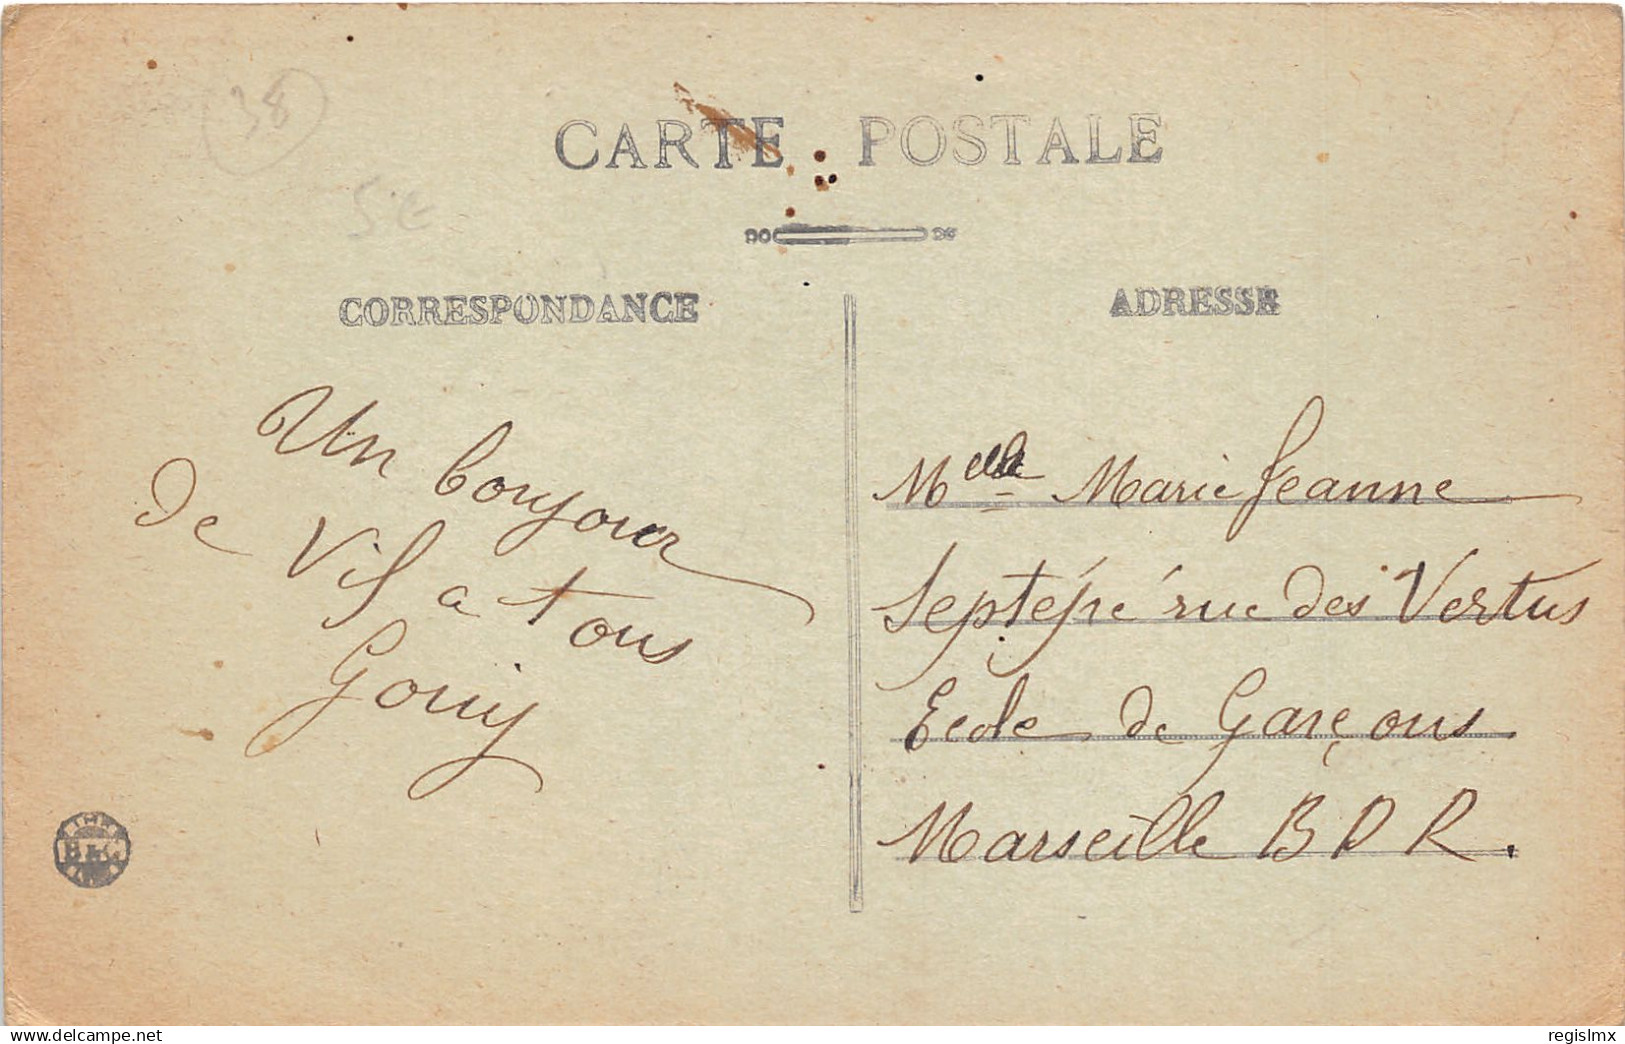 38
5 €
CARTE POSTALE
CORRESPONDANCE
ADRESSE
Un bonjour
de Vif a tous
Gouiy
Melle Marie Jeanne
Septépé rue des Vertus
Ecole de Garçons
Marseille B D R.
B & G
www.delcampe.net
regislmx